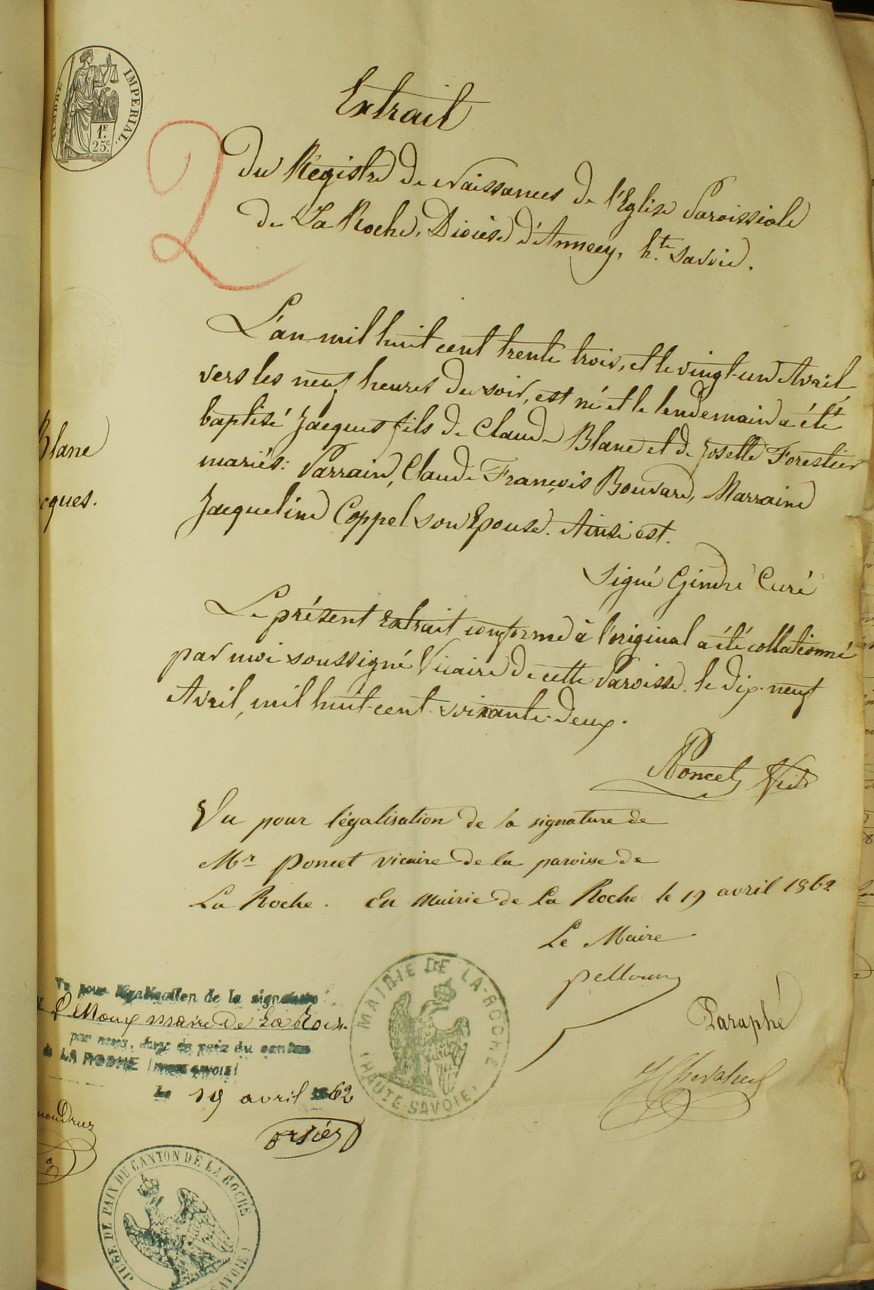 TIMBRE IMPERIAL.
1F.
25C.
2
Extrait
du Régistre de Naissances de l'Eglise Paroissiale
de La Roche, Diocèse d'Annecy, hte Savoie.
Blanc
cques.
L'an mil huit cent trente trois, et le vingt-un Avril
vers les neuf heures du soir, est né et le lendemain a été
baptisé Jacques fils de Claude Blanc et de Josette Forestier
mariés: Parrain, Claude François Bouvard, Marraine
Jacqueline Coppel son Epouse. Ainsi est.
Signé Gindre Curé
Le présent extrait conforme à l'original a été collationné
par moi soussigné Vicaire de cette Paroisse. le dix-neuf
Avril, mil huit-cent-soixante-deux.
Poncet Vic
Vu pour légalisation de la signature de
Mr Poncet vicaire de la paroisse de
La Roche. En Mairie de La Roche le 19 avril 1862
Le Maire
Pelloux
MAIRIE DE LA ROCHE
(HAUTE SAVOIE)
Paraphé
Vu pour légalisation de la signature
Pelloux maire de La Roche
par nous, Juge de paix du canton
de LA ROCHE (HAUTE SAVOIE)
Le 19 avril 1862
JUGE DE PAIX DU CANTON DE LA ROCHE